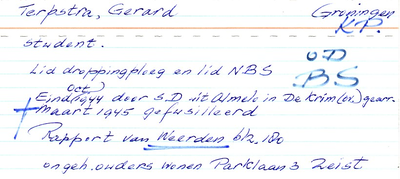 Terpstra, Gerard Groningen
KP.
student.
O.D
BS
Lid droppingploeg en lid NBS
Oct
Eind 1944 door S.D uit Almelo in De Krim (Ov.) gearr.
† Maart 1945 gefusilleerd
Rapport van Weerden blz. 180
ongeh. ouders wonen Parklaan 3 Zeist